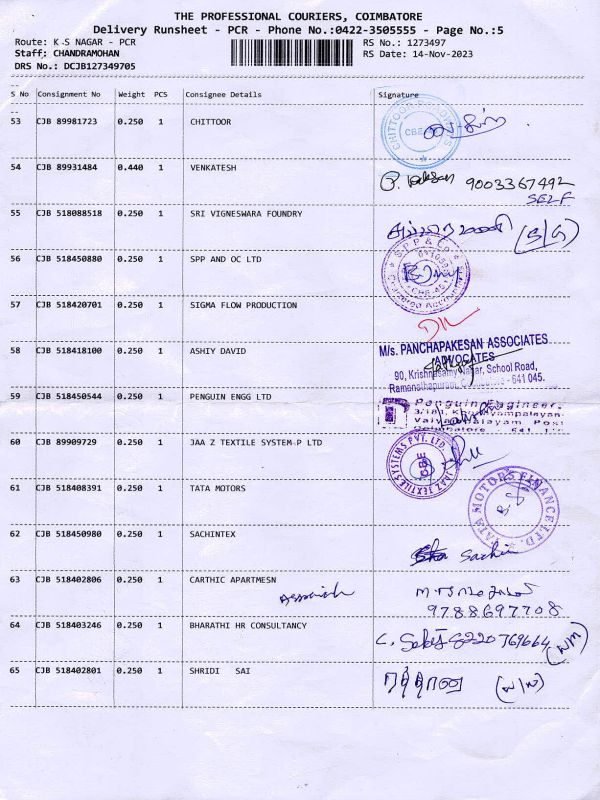 THE PROFESSIONAL COURIERS, COIMBATORE
Delivery Runsheet - PCR - Phone No.:0422-3505555 - Page No.:5
Route: K S NAGAR - PCR RS No.: 1273497
Staff: CHANDRAMOHAN RS Date: 14-Nov-2023
DRS No.: DCJB127349705
S No Consignment No Weight PCS Consignee Details Signature
53 CJB 89981723 0.250 1 CHITTOOR
54 CJB 89931484 0.440 1 VENKATESH
9003367492
SELF
55 CJB 518088518 0.250 1 SRI VIGNESWARA FOUNDRY
(S/G)
56 CJB 518450880 0.250 1 SPP AND OC LTD
S.P.P & Co.
57 CJB 518420701 0.250 1 SIGMA FLOW PRODUCTION
58 CJB 518418100 0.250 1 ASHIY DAVID
M/s. PANCHAPAKESAN ASSOCIATES
ADVOCATES
90, Krishnasamy Nagar, School Road,
Ramanathapuram, - 641 045.
59 CJB 518450544 0.250 1 PENGUIN ENGG LTD
Penguin Engineer
60 CJB 89909729 0.250 1 JAA Z TEXTILE SYSTEM-P LTD
JAAZ TEXTILE SYSTEMS PVT. LTD.
CBE
61 CJB 518408391 0.250 1 TATA MOTORS
TATA MOTORS FINANCE LTD.
62 CJB 518450980 0.250 1 SACHINTEX
Sachin
63 CJB 518402806 0.250 1 CARTHIC APARTMESN
9788697708
64 CJB 518403246 0.250 1 BHARATHI HR CONSULTANCY
8220769664
65 CJB 518402801 0.250 1 SHRIDI SAI